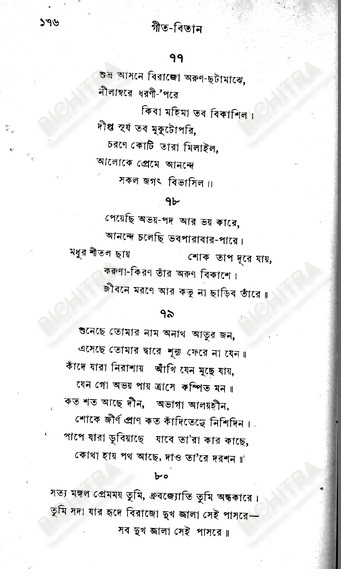 ১৭৬ গীত-বিতান
৭৭
শুভ্র আসনে বিরাজো অরুণ-ছটামাঝে,
নীলাম্বরে ধরণী-'পরে
কিবা মহিমা তব বিকাশিল।
দীপ্ত সূর্য তব মুকুটোপরি,
চরণে কোটি তারা মিলাইল,
আলোকে প্রেমে আনন্দে
সকল জগৎ বিভাসিল॥
৭৮
পেয়েছি অভয়-পদ আর ভয় কারে,
আনন্দে চলেছি ভবপারাবার-পারে।
মধুর শীতল ছায় শোক তাপ দূরে যায়,
করুণা-কিরণ তাঁর অরুণ বিকাশে।
জীবনে মরণে আর কভু না ছাড়িব তাঁরে॥
৭৯
শুনেছে তোমার নাম অনাথ আতুর জন,
এসেছে তোমার দ্বারে শূন্য ফেরে না যেন॥
কাঁদে যারা নিরাশায় আঁখি যেন মুছে যায়,
যেন গো অভয় পায় ত্রাসে কম্পিত মন॥
কত শত আছে দীন, অভাগা আলয়হীন,
শোকে জীর্ণ প্রাণ কত কাঁদিতেছে নিশিদিন।
পাপে যারা ডুবিয়াছে যাবে তা'রা কার কাছে,
কোথা হায় পথ আছে, দাও তা'রে দরশন॥
৮০
সত্য মঙ্গল প্রেমময় তুমি, ধ্রুবজ্যোতি তুমি অন্ধকারে।
তুমি সদা যার হৃদে বিরাজো দুখ জ্বালা সেই পাসরে—
সব দুখ জ্বালা সেই পাসরে॥
BICHITRA